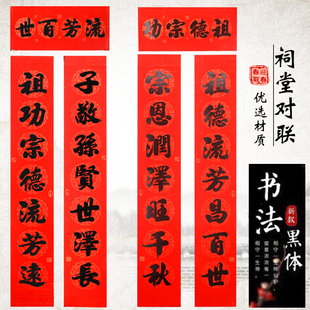 流芳百世
子敬孫賢世澤長
祖功宗德流芳遠
祖德宗功
祖德流芳昌百世
宗恩潤澤旺千秋
祠堂对联
优选材质
书法
新款
黑体